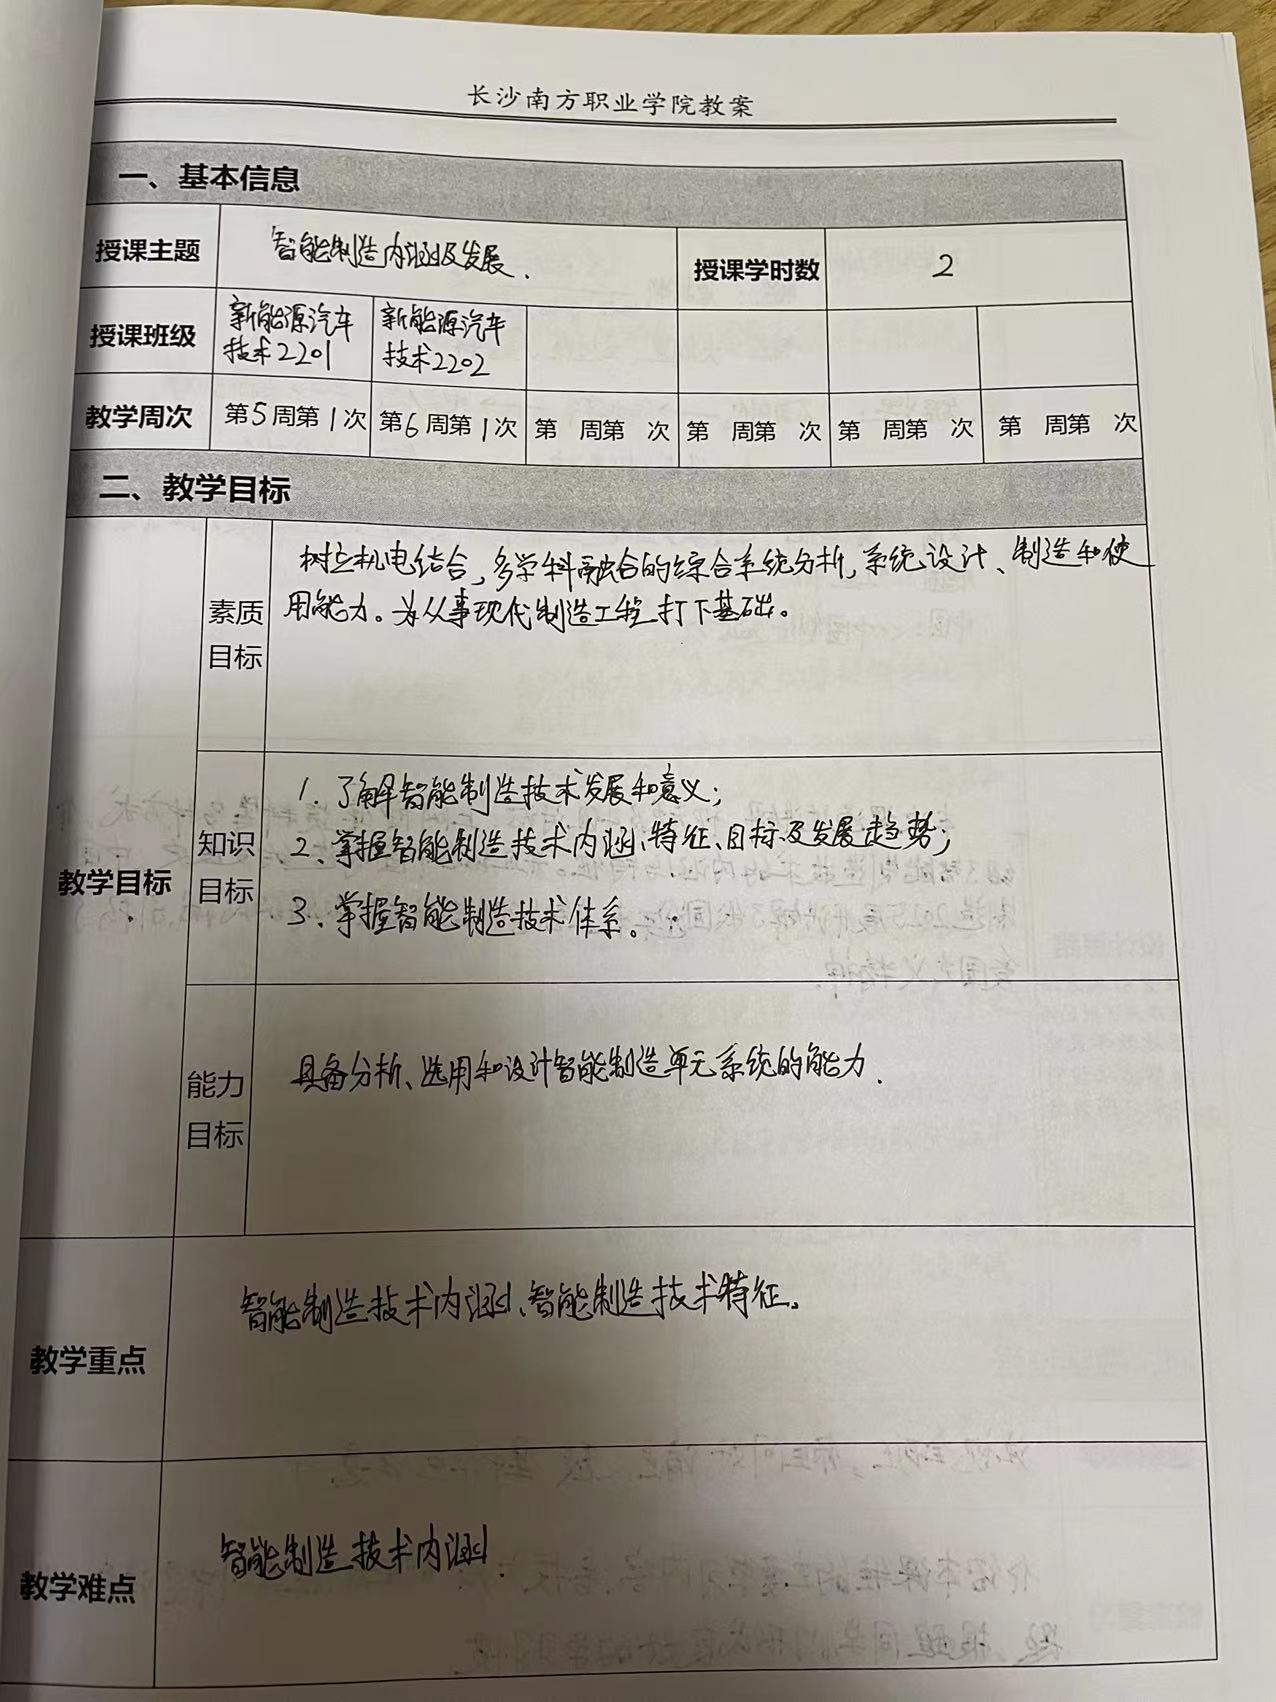 长沙南方职业学院教案
一、基本信息
授课主题 智能制造内涵及发展. 授课学时数 2
授课班级 新能源汽车技术2201 新能源汽车技术2202
教学周次 第5周第1次 第6周第1次 第 周第 次 第 周第 次 第 周第 次 第 周第 次
二、教学目标
教学目标
素质目标
树立机电结合,多学科融合的综合系统分析,系统设计、制造和使
用能力。为从事现代制造工程打下基础。
知识目标
1. 了解智能制造技术发展和意义;
2、掌握智能制造技术内涵、特征、目标及发展趋势;
3、掌握智能制造技术体系。
能力目标
具备分析、选用和设计智能制造单元系统的能力.
教学重点
智能制造技术内涵、智能制造技术特征。
教学难点
智能制造技术内涵.